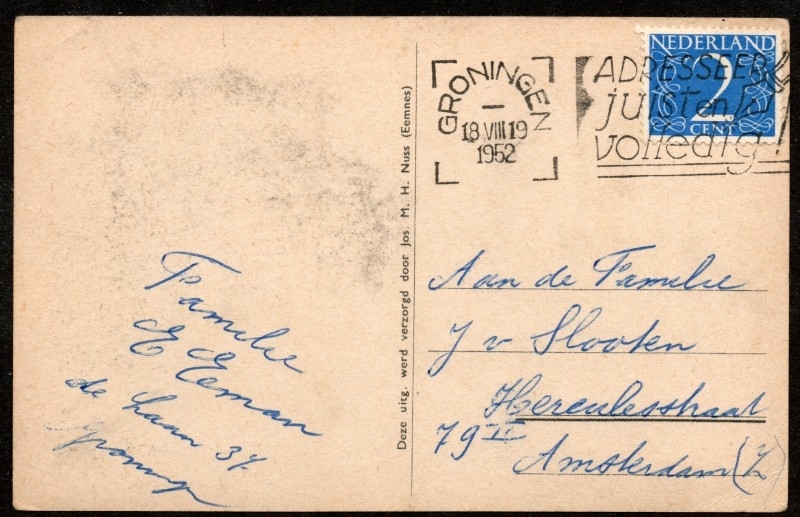 NEDERLAND
2
CENT
GRONINGEN
18 VIII 19
1952
ADRESSEER
juist en
volledig!
Deze uitg. werd verzorgd door Jos. M. H. Nuss (Eemnes)
Aan de Familie
J v Slooten
Herculesstraat
79 II
Amsterdam (Z)
Familie
E Eeman
de Laan 37